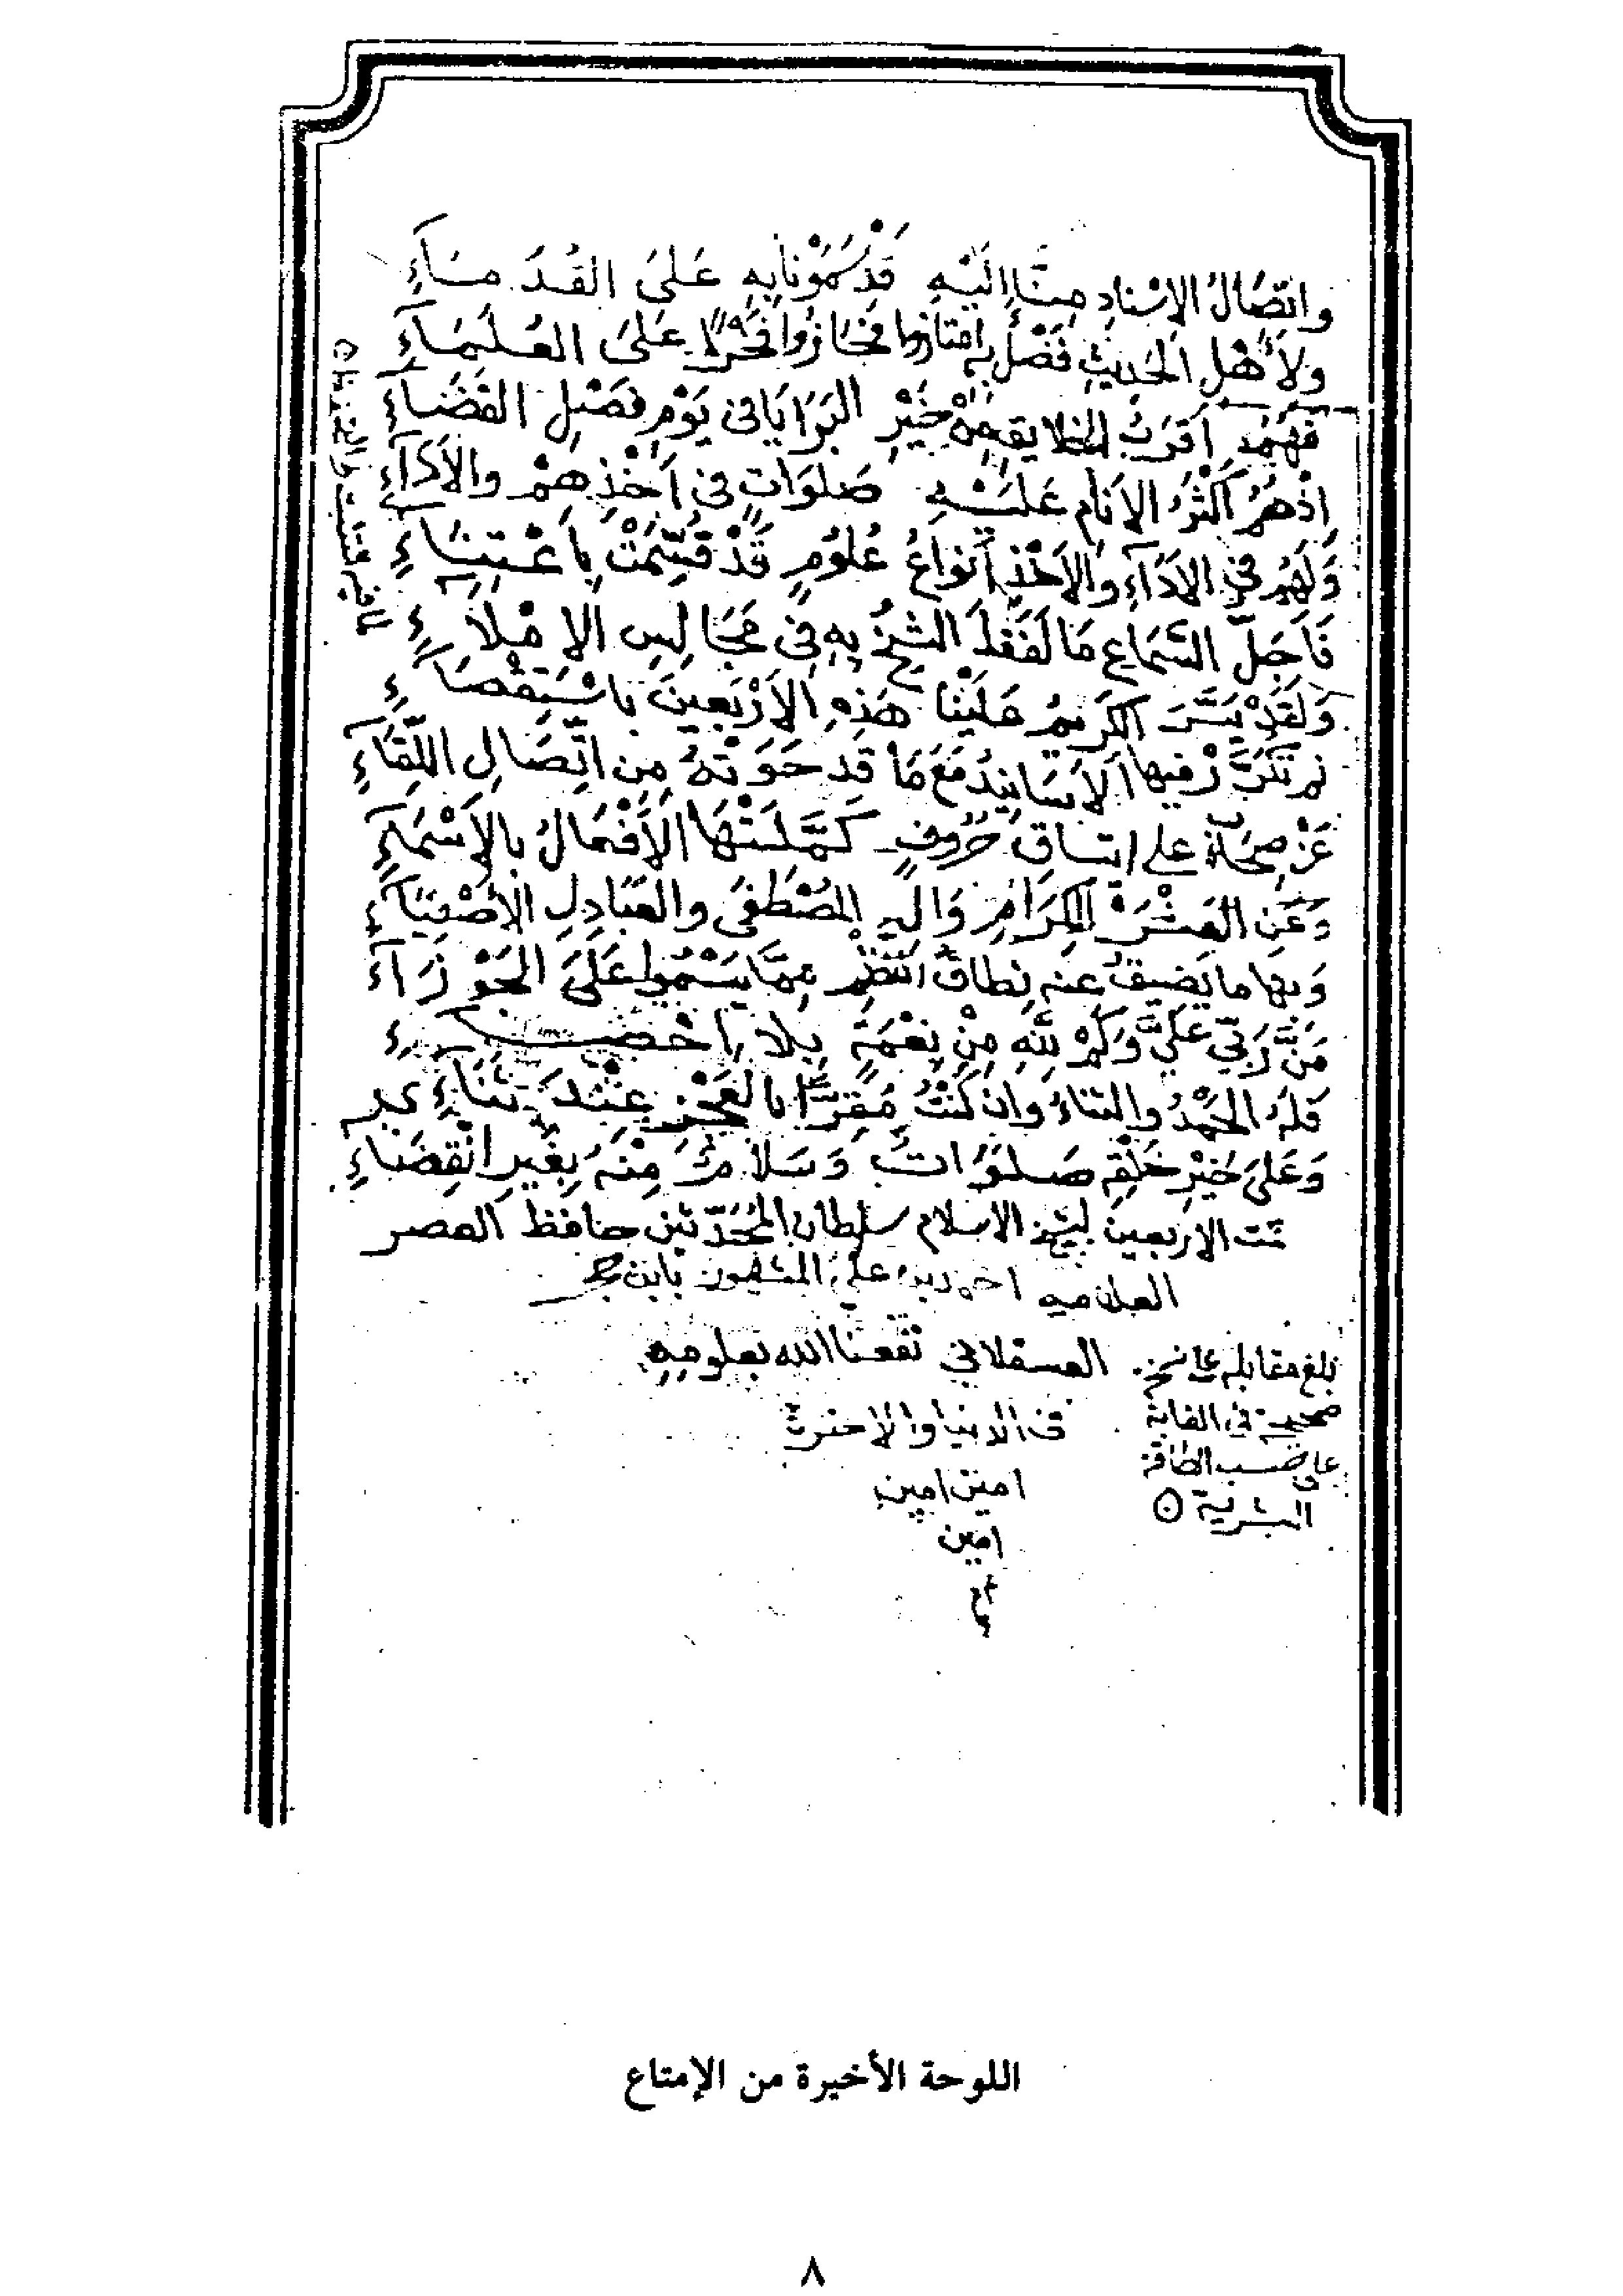 وَاتِّصَالُ الاِسْنَادِ مِنَّا اِلَيْهِ قَدْ سَمَوْنَا بِهِ عَلَى القُدَمَآءِ
وَلاَهْلِ الحَدِيثِ فَضْلٌ بِهِ امْتَازُوا فَحَازُوا فَخْرًا عَلَى العُلَمَآءِ
فَهُمُ اَقْرَبُ الخَلايِقِ مِنْ خَيْرِ البَرَايَا فِى يَوْمِ فَصْلِ القَضَاءِ
اِذْ هُمُ اَكْثَرُ الاَنَامِ عَلَيْهِ صَلَوَاتٍ فِى اَخْذِهِمْ وَالاَدَآءِ
وَلَهُمْ فِى الاَدَآءِ وَالاَخْذِ اَنْوَاعُ عُلُومٍ قَدْ قُسِّمَتْ بِاعْتِنَاءِ
فَاَجَلُّ السَّمَاعِ مَا لَفَظَ الشَّيْخُ بِهِ فِى مَجَالِسِ الاِمْلاءِ
وَلَقَدْ يَسَّرَ الكَرِيمُ عَلَيْنَا هَذِهِ الاَرْبَعِينَ بِاسْتِقْصَاءِ
لم تَتَكَرَّرْ فِيهَا الاَسَانِيدُ مَعَ مَا قد حَوَتْهُ مِن اتِّصَالِ اللِّقَاءِ
عَنْ صِحَابٍ على اتساق حُرُوفٍ كَمَّلَتْهَا الاَفْعَالُ بِالاَسْمَآءِ
وَعَنِ العَشْرَةِ الكِرَامِ وَالِ المُصْطَفَى والعَبَادِلِ الاَصْفِيَاءِ
وَبِهَا ما يَضِيقُ عنه نِطَاقُ النَّظْمِ مِمَّا يَسْمُوا عَلَى الجَوْزَآءِ
مَنَّ رَبِّي عَلَيَّ وَكَمْ لِلَّهِ مِنْ نِعْمَةٍ بِلا اِحْصَاءِ
فَلَهُ الحَمْدُ والثناءُ وان كُنْتُ مُقِرًّا بالعَجْزِ عِنْدَ ثَنَاءِى
وَعَلَى خَيْرِ خَلْقِهِ صَلَوَاتٌ وَسَلامٌ مِنْهُ بِغَيْرِ انْقِضَاءِ
تمت الاربعين لشيخ الاسلام سلطان المُحَدِّثين حافظ العصر
العلامه احمد بن على المشهور بابن حجر
العسقلانى نفعنا الله بعلومه
فى الدنيا والاخرة
امين امين
امين
بلغ مقابلة على نسخة
صحيحة فى الغاية
على حسب الطاقة
البشرية
اللوحة الأخيرة من الإمتاع
٨